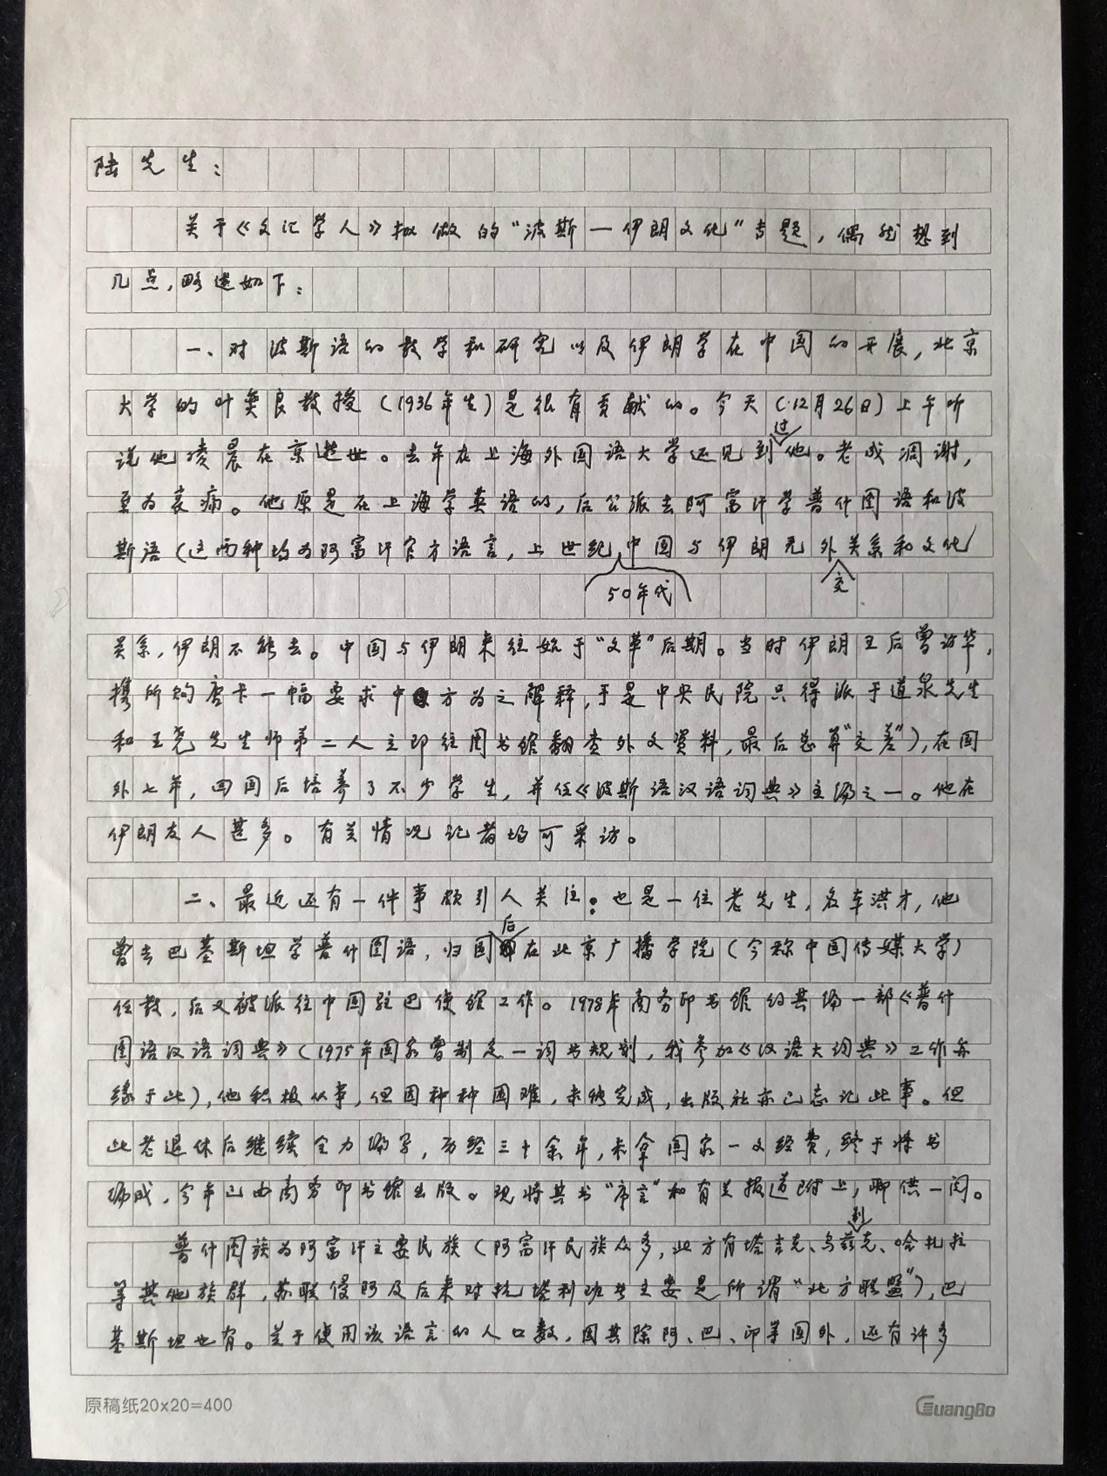 陆先生：
关于《文汇学人》拟做的“波斯—伊朗文化”专题，偶然想到
几点，略述如下：
一、对波斯语的教学和研究以及伊朗学在中国的开展，北京
大学的叶奕良教授（1936年生）是很有贡献的。今天（12月26日）上午听
说他凌晨在京逝世。去年在上海外国语大学还见到过他。老成凋谢，
至为哀痛。他原是在上海学英语的，后公派去阿富汗学普什图语和波
斯语（这两种均为阿富汗官方语言，上世纪50年代中国与伊朗无外交关系和文化
关系，伊朗不能去。中国与伊朗来往始于“文革”后期。当时伊朗王后曾访华，
携所购唐卡一幅要求中方为之解释，于是中央民院只得派于道泉先生
和王尧先生师弟二人立即往图书馆翻查外文资料，最后总算“交差”），在国
外七年，回国后培养了不少学生，并任《波斯语汉语词典》主编之一。他在
伊朗友人甚多。有关情况记者均可采访。
二、最近还有一件事颇引人关注：也是一位老先生，名车洪才，他
曾去巴基斯坦学普什图语，归国后在北京广播学院（今称中国传媒大学）
任教，后又被派往中国驻巴使馆工作。1978年商务印书馆约其编一部《普什
图语汉语词典》（1975年国家曾制定一词书规划，我参加《汉语大词典》工作亦
缘于此），他积极从事，但因种种困难，未能完成，出版社亦已忘记此事。但
此老退休后继续全力编写，历经三十余年，未拿国家一文经费，终于将书
编成，今年已由商务印书馆出版。现将其书“序言”和有关报道附上，聊供一阅。
普什图族为阿富汗主要民族（阿富汗民族众多，北方有塔吉克、乌兹别克、哈扎拉
等其他族群，苏联侵阿及后来对抗塔利班者主要是所谓“北方联盟”），巴
基斯坦也有。关于使用该语言的人口数，因其除阿、巴、印等国外，还有许多
原稿纸20×20=400
GuangBo